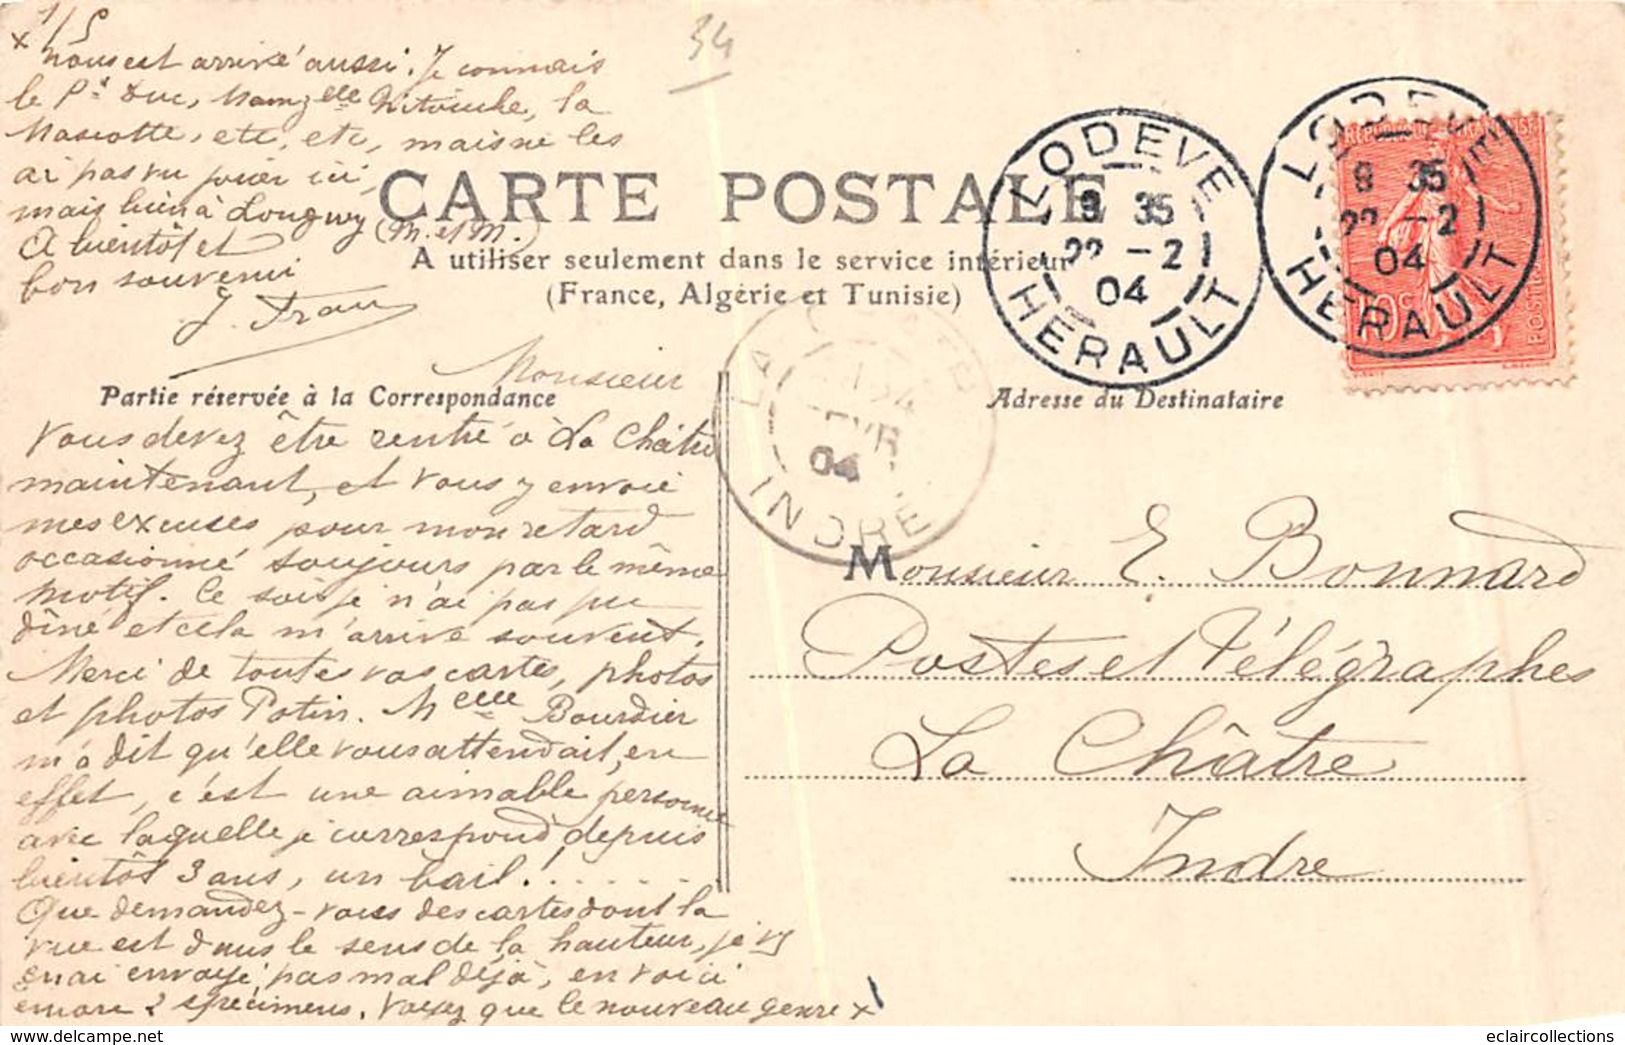 1/5
34
x nous est arrivé aussi. Je connais
le Pt Duc, Mamzelle Nitouche, la
Mascotte, etc, etc, mais ne les
ai pas vu jouer ici,
mais bien à Longwy
(M. et M.)
A bientôt et
bon souvenir
CARTE POSTALE
A utiliser seulement dans le service intérieur
(France, Algérie et Tunisie)
LODEVE
8 35
22 - 2
04
HERAULT
LODEVE
8 35
22 - 2
04
HERAULT
10c
POSTES
LA CHATRE
04
INDRE
Partie réservée à la Correspondance
Adresse du Destinataire
Monsieur
Vous devez être rentré à La Châtre
maintenant, et vous y envoie
mes excuses pour mon retard
occasionné toujours par le même
motif. Ce soir je n'ai pas pu
dîné et cela m'arrive souvent.
Merci de toutes vos cartes, photos
et photos Potin. Melle Bourdier
m'a dit qu'elle vous attendait, en
effet, c'est une aimable personne
avec laquelle je correspond, depuis
bientôt 3 ans, un bail! . . . . . .
Que demandez-vous des cartes dont la
vue est dans le sens de la hauteur, je vs
en ai envoyé pas mal déjà, en voici
encore 2 spécimens. Voyez que le nouveau genre x
Monsieur E. Bonnard
Postes et Télégraphes
La Châtre
Indre
eclaircollections